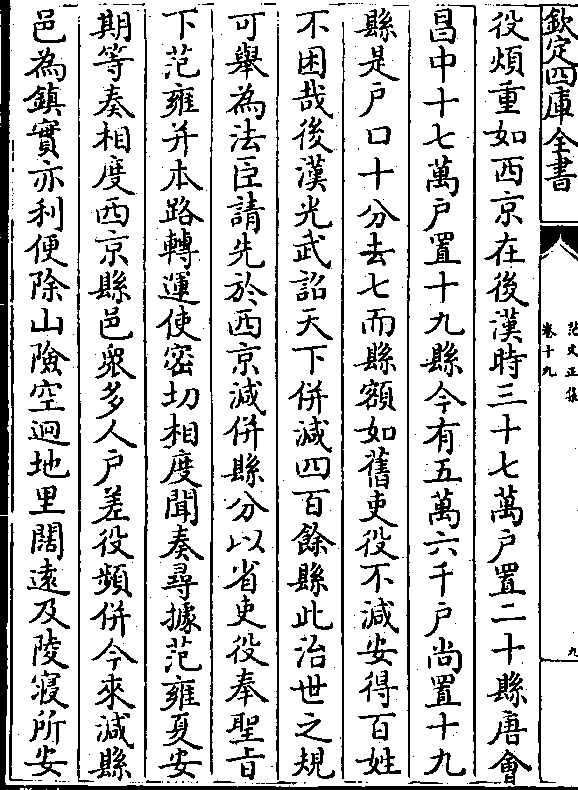 欽定四庫全書
范文正集
卷十九
九
役煩重如西京在後漢時三十七萬戶置二十縣唐會
昌中十七萬戶置十九縣今有五萬六千戶尚置十九
縣是戶口十分去七而縣額如舊吏役不減安得百姓
不困哉後漢光武詔天下併減四百餘縣此治世之規
可舉為法臣請先於西京減併縣分以省吏役奉聖旨
下范雍并本路轉運使密切相度聞奏尋據范雍夏安
期等奏相度西京縣邑眾多人戶差役頻併今來減縣
邑為鎮實亦利便除山險空迥地里闊遠及陵寢所安